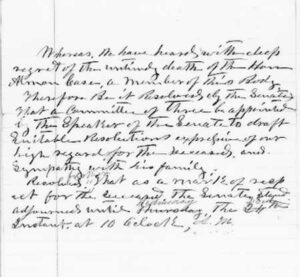 Whereas, We have heard, with deep
regret of the untimely death of the Hon
Almon Case, a member of this Body
Therefore Be it Resolved by the Senate
That a Committee of three be appointed
by the Speaker of the Senate to draft
Suitable Resolutions expressive of our
high regard for the deceased, and
Sympathy with his family.
Resolved, That as a mark of resp
ect for the deceased the Senate stand
adjourned until Thursday the 24th
Instant, at 10 oclock, A. M.